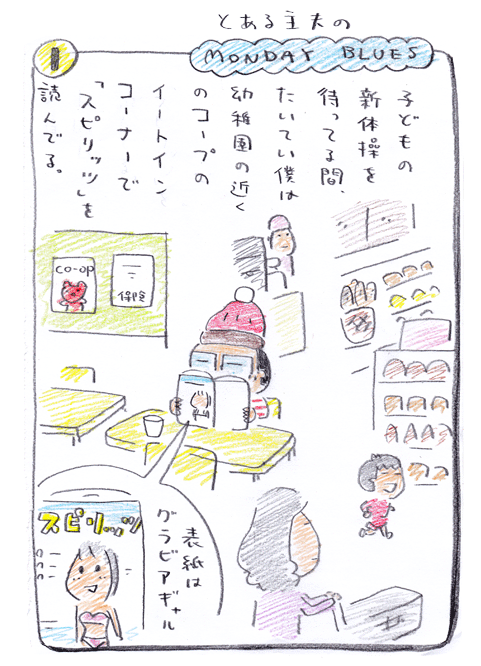 とある主夫の
MONDAY BLUES
1
子どもの
新体操を
待ってる間、
たいてい僕は
幼稚園の近く
のコープの
イートイン
コーナーで
「スピリッツ」を
読んでる。
co-op
保険
スピリッツ
表紙は
グラビアギャル